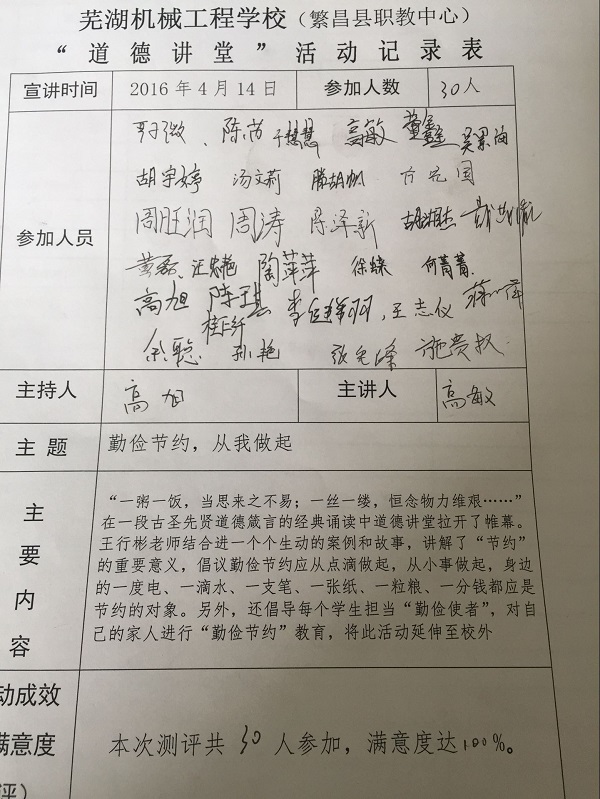 芜湖机械工程学校（繁昌县职教中心）
“道德讲堂”活动记录表
宣讲时间 2016年4月14日 参加人数 30人
参加人员
陈芮 于慧慧 高敏
胡宇婷 汤文莉 滕胡帆 方元国
周旺润 周涛 陈泽新 胡湘杰
黄磊 汪忠艳 陶萍萍 徐缐 何菁菁
高旭 陈琪 王志仪
余聪 孙艳 施贵权
主持人 高旭 主讲人 高敏
主题 勤俭节约，从我做起
主要内容
“一粥一饭，当思来之不易；一丝一缕，恒念物力维艰……”
在一段古圣先贤道德箴言的经典诵读中道德讲堂拉开了帷幕。
王行彬老师结合进一个个生动的案例和故事，讲解了“节约”
的重要意义，倡议勤俭节约应从点滴做起，从小事做起，身边
的一度电、一滴水、一支笔、一张纸、一粒粮、一分钱都应是
节约的对象。另外，还倡导每个学生担当“勤俭使者”，对自
己的家人进行“勤俭节约”教育，将此活动延伸至校外
动成效
满意度
评）
本次测评共 30 人参加，满意度达100%。